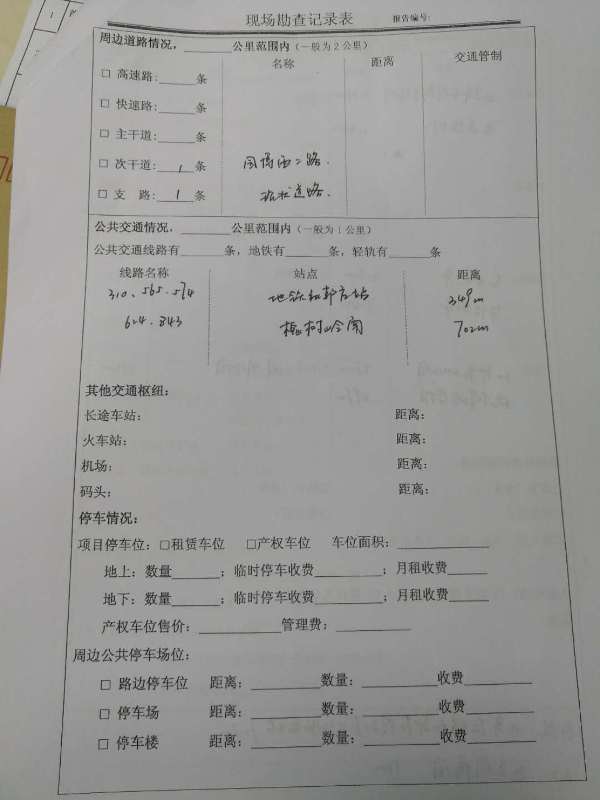 现场勘查记录表 报告编号:
周边道路情况，______公里范围内（一般为2公里）
名称 距离 交通管制
□ 高速路:_____条
□ 快速路:_____条
□ 主干道:_____条
□ 次干道:__1__条 园博西二路.
□ 支 路:__1__条 道路.
公共交通情况，______公里范围内（一般为1公里）
公共交通线路有______条，地铁有______条，轻轨有______条
线路名称 站点 距离
310、565、574 地铁 站 349m
624、843 村岭南 702m
其他交通枢纽：
长途车站: 距离:
火车站: 距离:
机场: 距离:
码头: 距离:
停车情况：
项目停车位: □租赁车位 □产权车位 车位面积:__________
地上: 数量______; 临时停车收费________; 月租收费_____
地下: 数量______; 临时停车收费________; 月租收费_____
产权车位售价:__________管理费:_________
周边公共停车场位:
□ 路边停车位 距离:_________数量:_________收费________
□ 停车场 距离:_________数量:_________收费________
□ 停车楼 距离:_________数量:_________收费________